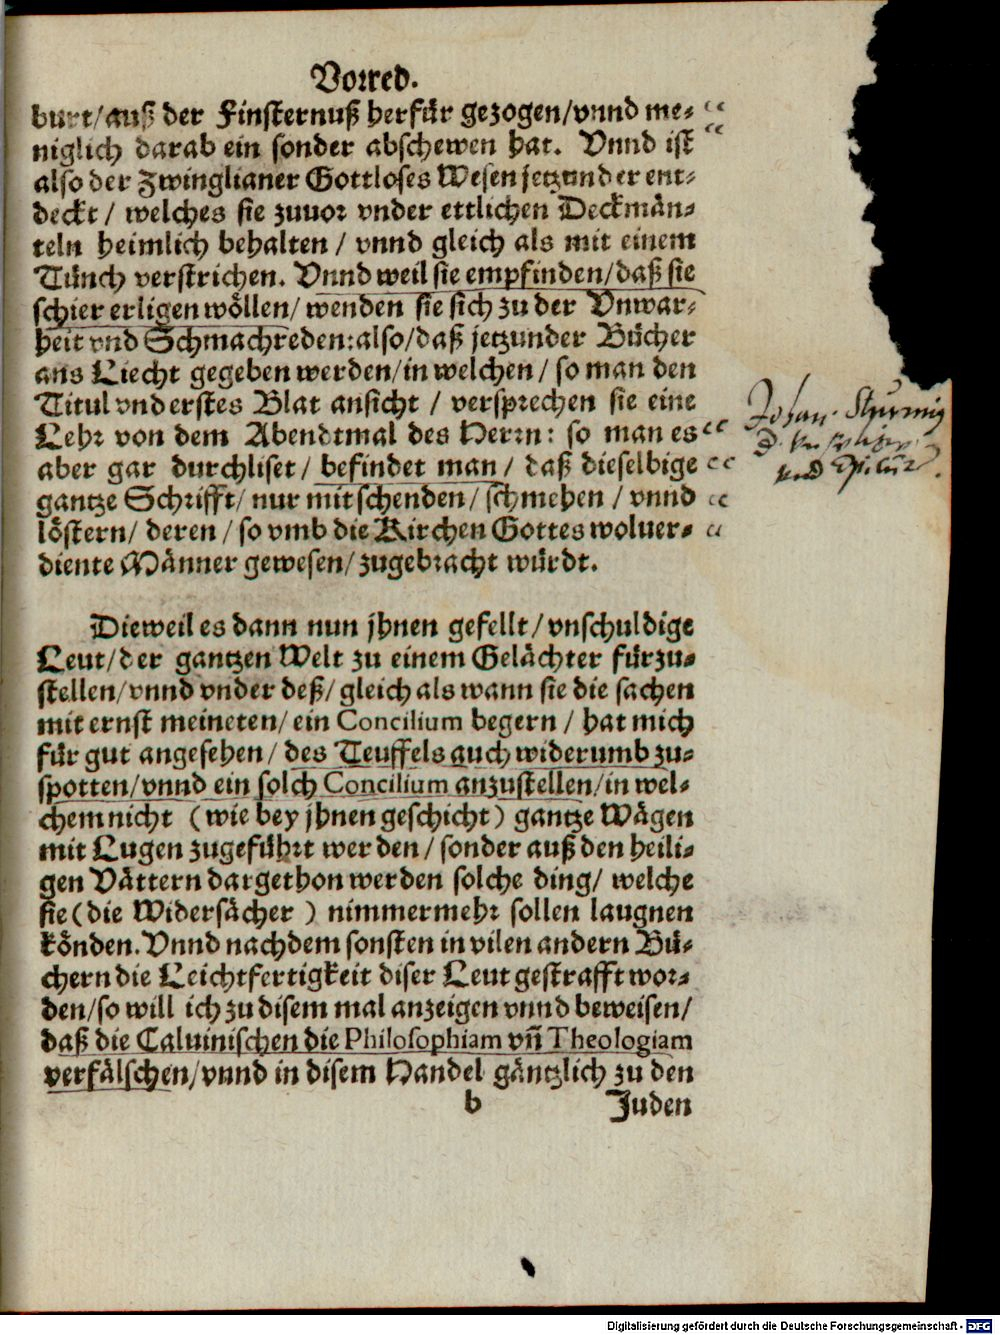 Vorred.
burt/auß der Finsternuß herfür gezogen/vnnd me-
niglich darab ein sonder abschewen hat. Vnnd ist
also der Zwinglianer Gottloses Wesen jetzunder ent-
deckt / welches sie zuuor vnder ettlichen Deckmän-
teln heimlich behalten / vnnd gleich als mit einem
Tünch verstrichen. Vnnd weil sie empfinden/daß sie
schier erligen wöllen/ wenden sie sich zu der Vnwar-
heit vnd Schmachreden:also/daß jetzunder Bücher
ans Liecht gegeben werden/in welchen / so man den
Titul vnd erstes Blat ansicht / versprechen sie eine
Lehr von dem Abendtmal des Herrn: so man es
aber gar durchliset/ befindet man / daß dieselbige
gantze Schrifft/ nur mit schenden/ schmehen / vnnd
löstern/ deren / so vmb die Kirchen Gottes woluer-
diente Männer gewesen/ zugebracht würdt.
Johan. Sturmig
vnd
Dieweil es dann nun jhnen gefellt/ vnschuldige
Leut/der gantzen Welt zu einem Gelächter fürzu-
stellen/vnnd vnder deß/ gleich als wann sie die sachen
mit ernst meineten/ ein Concilium begern / hat mich
für gut angesehen/ des Teuffels auch widerumb zu-
spotten/vnnd ein solch Concilium anzustellen/in wel-
chem nicht (wie bey jhnen geschicht) gantze Wägen
mit Lugen zugeführt werden/ sonder auß den heili-
gen Vättern dargethon werden solche ding/ welche
sie (die Widersächer) nimmermehr sollen laugnen
könden. Vnnd nachdem sonsten in vilen andern Bü-
chern die Leichtfertigkeit diser Leut gestrafft wor-
den/so will ich zu disem mal anzeigen vnnd beweisen/
daß die Caluinischen die Philosophiam vñ Theologiam
verfälschen/vnnd in disem Handel gäntzlich zu den
b Juden
Digitalisierung gefördert durch die Deutsche Forschungsgemeinschaft - DFG